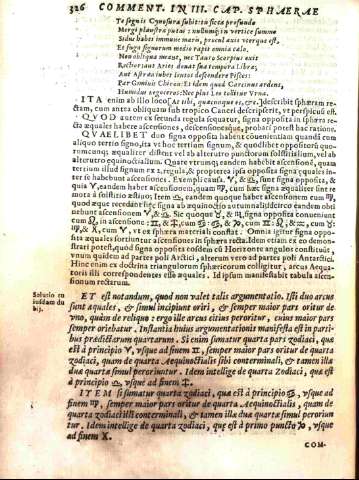 326 COMMENT. IN III. CAP. SPHAERAE
Te segnis Cynosura subit: te sicca profundo
Mergi plaustra putat: nullumq́; in vertice summo
Sidus habet immune maris, procul axis vterque est,
Et fuga signorum medio rapit omnia cælo.
Non obliqua meant, nec Tauro Scorpius exit
Rectior: aut Aries donat sua tempora Libræ;
Aut Astræa iubet lentos descendere Pisces:
Par Geminis Chiron: Et idem quod Carcinus ardens,
Humidus Ægoceros: Nec plus Leo tollitur Vrna.
ITA enim ab illo loco [At tibi, quæcunque es, &c.] describit sphæram re-
ctam, cum antea obliquam sub tropico Cancri descripserit, vt perspicuũ est.
QVOD autem ex secunda regula sequatur, signa opposita in sphæra re-
cta æquales habere ascensiones, descensionesque, probari potest hac ratione.
QVAELIBET duo signa opposita habent conuenientiam quandã cum
aliquo tertio signo, ita vt hoc tertium signum, & quodlibet oppositorũ quo-
rumcunq; æqualiter distent vel ab alterutro punctorum solstitialium, vel ab
alterutro æquinoctialium. Quare vtrumq; eandem habebit ascensionẽ, quam
tertium illud signum ex regula, & propterea ipsa opposita signa æquales in-
ter se habebunt ascensiones. Exempli causa, ♈, & ♎, sunt signa opposita, &
quia ♈, eandem habet ascensionem, quam ♍, cum hæc signa æqualiter sint re-
mota à solstitio æstiuo; Item ♎, eandem quoque habet ascensionem cum ♍,
quòd æque recedant hęc signa ab æquinoctio autumnali; idcirco eandem obti
nebunt ascensionem ♈, & ♎. Sic quoque ♉, & ♏, signa opposita conueniunt
cum ♌, in ascensione: ♊, & ♐, cum ♋: ♋, & ♑, cum ♊: ♌, & ♒, cum ♉:
♍, & ♓, cum ♈, vt ex sphæra materiali constat. Omnia igitur signa opposi-
ta æquales sortiuntur ascensiones in sphæra recta. Idem etiam ex eo demon-
strari potest, quòd signa opposita eosdem cũ Horizonte angulos constituãt,
vnum quidem ad partes poli Arctici, alterum vero ad partes poli Antarctici.
Hinc enim ex doctrina triangulorum sphæricorum colligitur, arcus Aequa-
toris illis correspondentes esse æquales. Id ipsum manifestabit tabula ascen-
sionum rectarum.
ET est notandum, quod non valet talis argumentatio. Isti duo arcus
sunt æquales, & simul incipiunt oriri, & semper maior pars oritur de
vno, quàm de reliquo: ergo ille arcus citius peroritur, cuius maior pars
semper oriebatur. Instantia huius argumentationis manifesta est in parti-
bus prædictarum quartarum. Si enim sumatur quarta pars zodiaci, quæ
est à principio ♈, vsque ad finem ♊, semper maior pars oritur de quarta
zodiaci, quam de quarta Aequinoctialis sibi conterminali, & tamen illæ
duæ quartæ simul peroriuntur. Idem intellige de quarta Zodiaci, quæ est
à principio ♎, vsque ad finem ♐.
ITEM si sumatur quarta zodiaci, quæ est à principio ♋, vsque ad
finem ♍, semper maior pars oritur de quarta Aequinoctialis, quam de
quarta zodiaci illi conterminali, & tamen illæ duæ quartæ simul periorun
tur. Idem intellige de quarta zodiaci, quæ est à primo puncto ♑, vsque
ad finem ♓.
COM-
Solutio cu
iusdam du
bij.